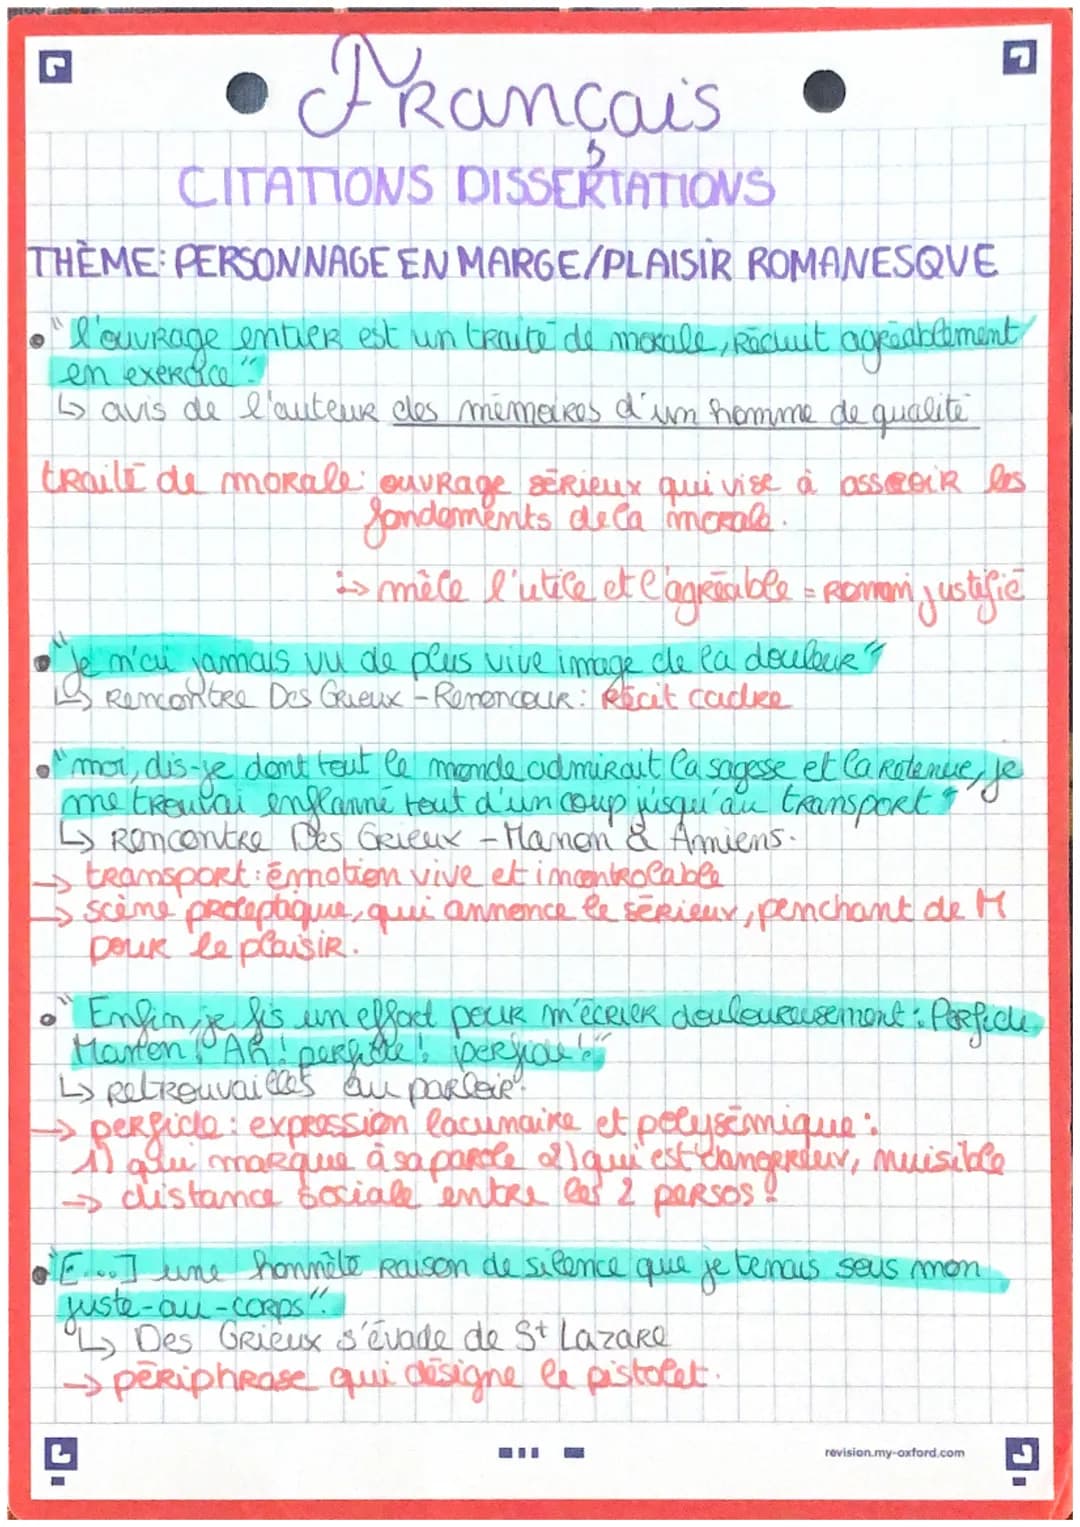 Français
CITATIONS DISSERTATIONS
THÈME: PERSONNAGE EN MARGE/PLAISIR ROMANESQUE
• "l'ouvrage entier est un traité de morale, réduit agréablement
en exercice".
↳ avis de l'auteur des mémoires d'un homme de qualité
traité de morale: ouvrage sérieux qui vise à asseoir les
fondements de la morale.
↳ mêle l'utile et l'agréable = roman justifié
• "je n'ai jamais vu de plus vive image de la douleur"
↳ Rencontre Des Grieux - Renoncour: Récit cadre
• "moi, dis-je dont tout le monde admirait la sagesse et la retenue, je
me trouvai enflammé tout d'un coup jusqu'au transport"
↳ Rencontre Des Grieux - Manon à Amiens.
→ transport: émotion vive et incontrolable
→ scène proleptique, qui annonce le sérieux, penchant de M
pour le plaisir.
• "Enfin, je fis un effort pour m'écrier douloureusement: Perfide
Manon! Ah! perfide! perfide!"
↳ retrouvailles au parloir.
→ perfide: expression lacunaire et polysémique:
1) qui manque à sa parole 2) qui est dangereux, nuisible
→ distance sociale entre les 2 persos!
• "[...] une honnête raison de silence que je tenais sous mon
juste-au-corps".
↳ Des Grieux s'évade de St Lazare
→ périphrase qui désigne le pistolet.
revision.my-oxford.com